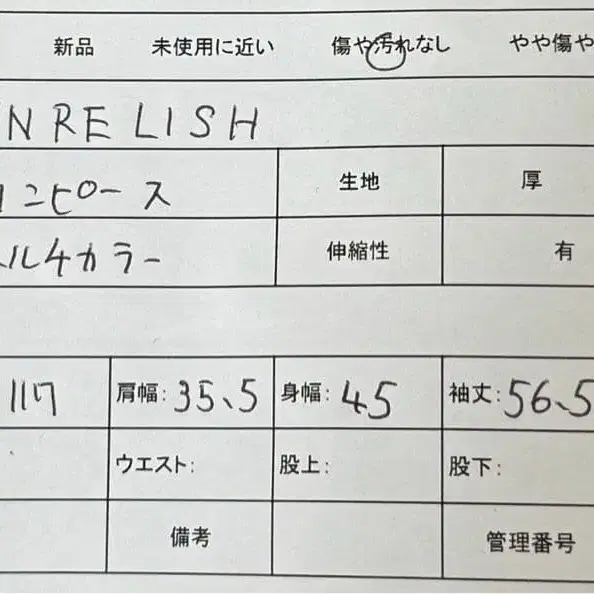 新品 未使用に近い 傷や汚れなし やや傷や
N RELISH
ンピース 生地 厚
ルチカラー 伸縮性 有
117 肩幅: 35.5 身幅: 45 袖丈: 56.5
ウエスト: 股上: 股下:
備考 管理番号